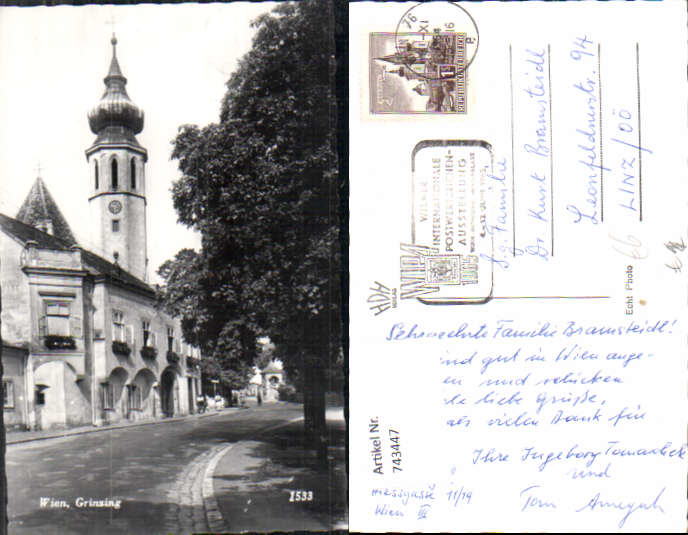 Wien, Grinzing
1533
REPUBLIK ÖSTERREICH
WIENER
INTERNATIONALE
POSTWERTZEICHEN-
AUSSTELLUNG
WIPA
1965
HDH
VERLAG
S.g. Familie
Dr Kurt Bramsteidl
Leonfeldnerstr. 94
LINZ/OÖ
Echt Photo
Artikel Nr.
743447
Sehr geehrte Familie Bramsteidl!
ind gut in Wien ange-
en und schicken
le liebe Grüße,
als vielen Dank für
Ihre Ingeborg
und
Tom
11/19
Wien III